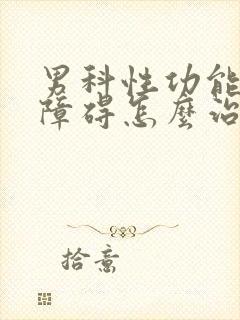 男科性功能
障碍怎麼治
拾意